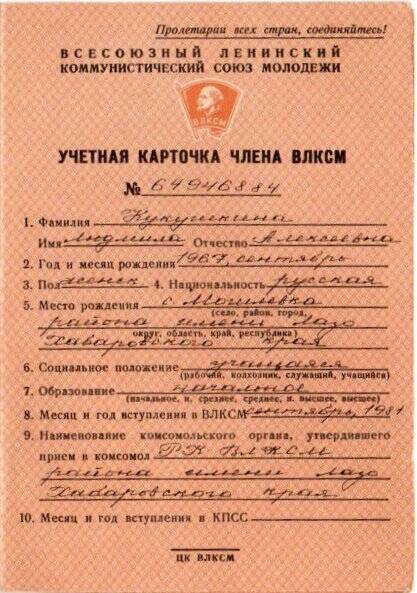 Пролетарии всех стран, соединяйтесь!
ВСЕСОЮЗНЫЙ ЛЕНИНСКИЙ
КОММУНИСТИЧЕСКИЙ СОЮЗ МОЛОДЕЖИ
ВЛКСМ
УЧЕТНАЯ КАРТОЧКА ЧЛЕНА ВЛКСМ
№ 64946884
1. Фамилия Кукушкина
Имя Людмила Отчество Алексеевна
2. Год и месяц рождения 1967, сентябрь
3. Пол женск 4. Национальность русская
5. Место рождения с. Могилевка
(село, район, город,
района имени Лазо
округ, область, край, республика)
Хабаровского края
6. Социальное положение учащаяся
(рабочий, колхозник, служащий, учащийся)
7. Образование начальное
(начальное, н. среднее, среднее, н. высшее, высшее)
8. Месяц и год вступления в ВЛКСМ сентябрь, 1981
9. Наименование комсомольского органа, утвердившего
прием в комсомол РК ВЛКСМ
района имени Лазо
Хабаровского края
10. Месяц и год вступления в КПСС
ЦК ВЛКСМ